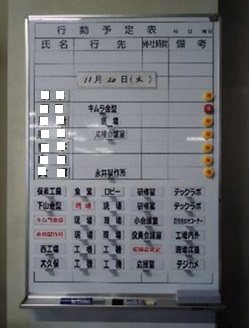 行動予定表
氏名 行先 帰社時間 備考
11月20日(火)
キムラ金型
現場
応接会議室
永井製作所
保泉工業 食堂 ロビー 研修室 テックラボ
下山金型 現場 現場 研修室 テックラボ
キムラ金型 現場 現場 小会議室
永井製作所 現場 現場 役員会議室 工場内外
西工場 工機 工機 応接会議室 現場応援
大久保 工機 工機 応接室 デジカメ